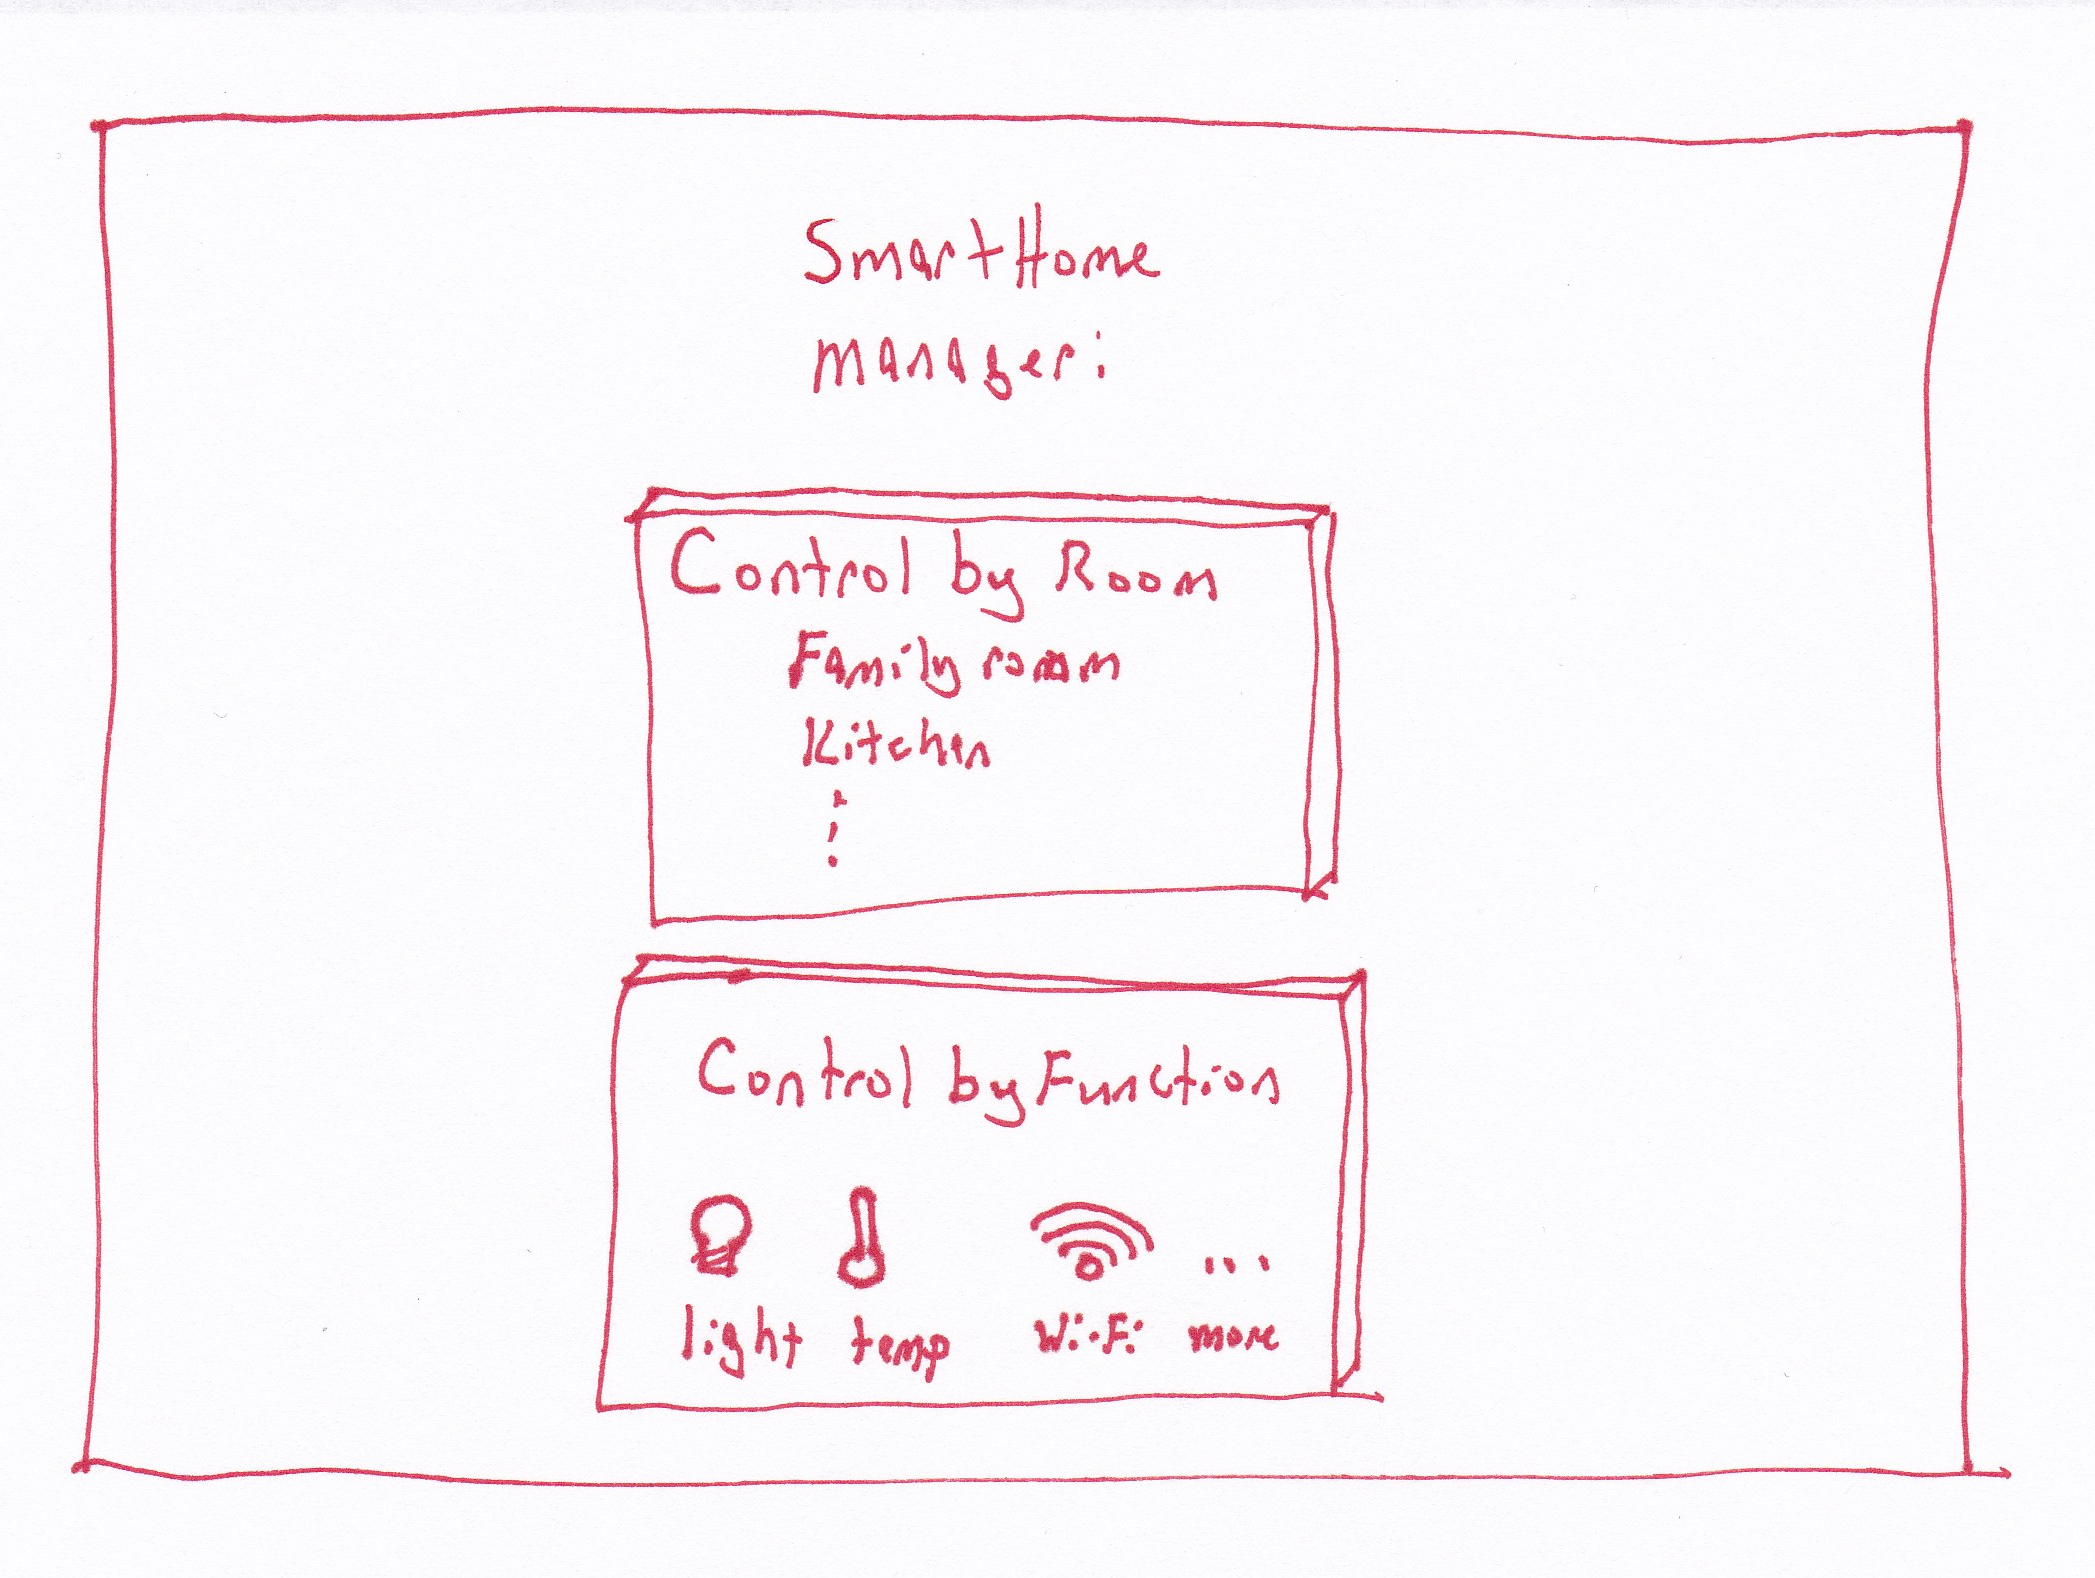 SmartHome
manager:
Control by Room
Family room
Kitchen
Control by Function
light temp Wi-Fi more